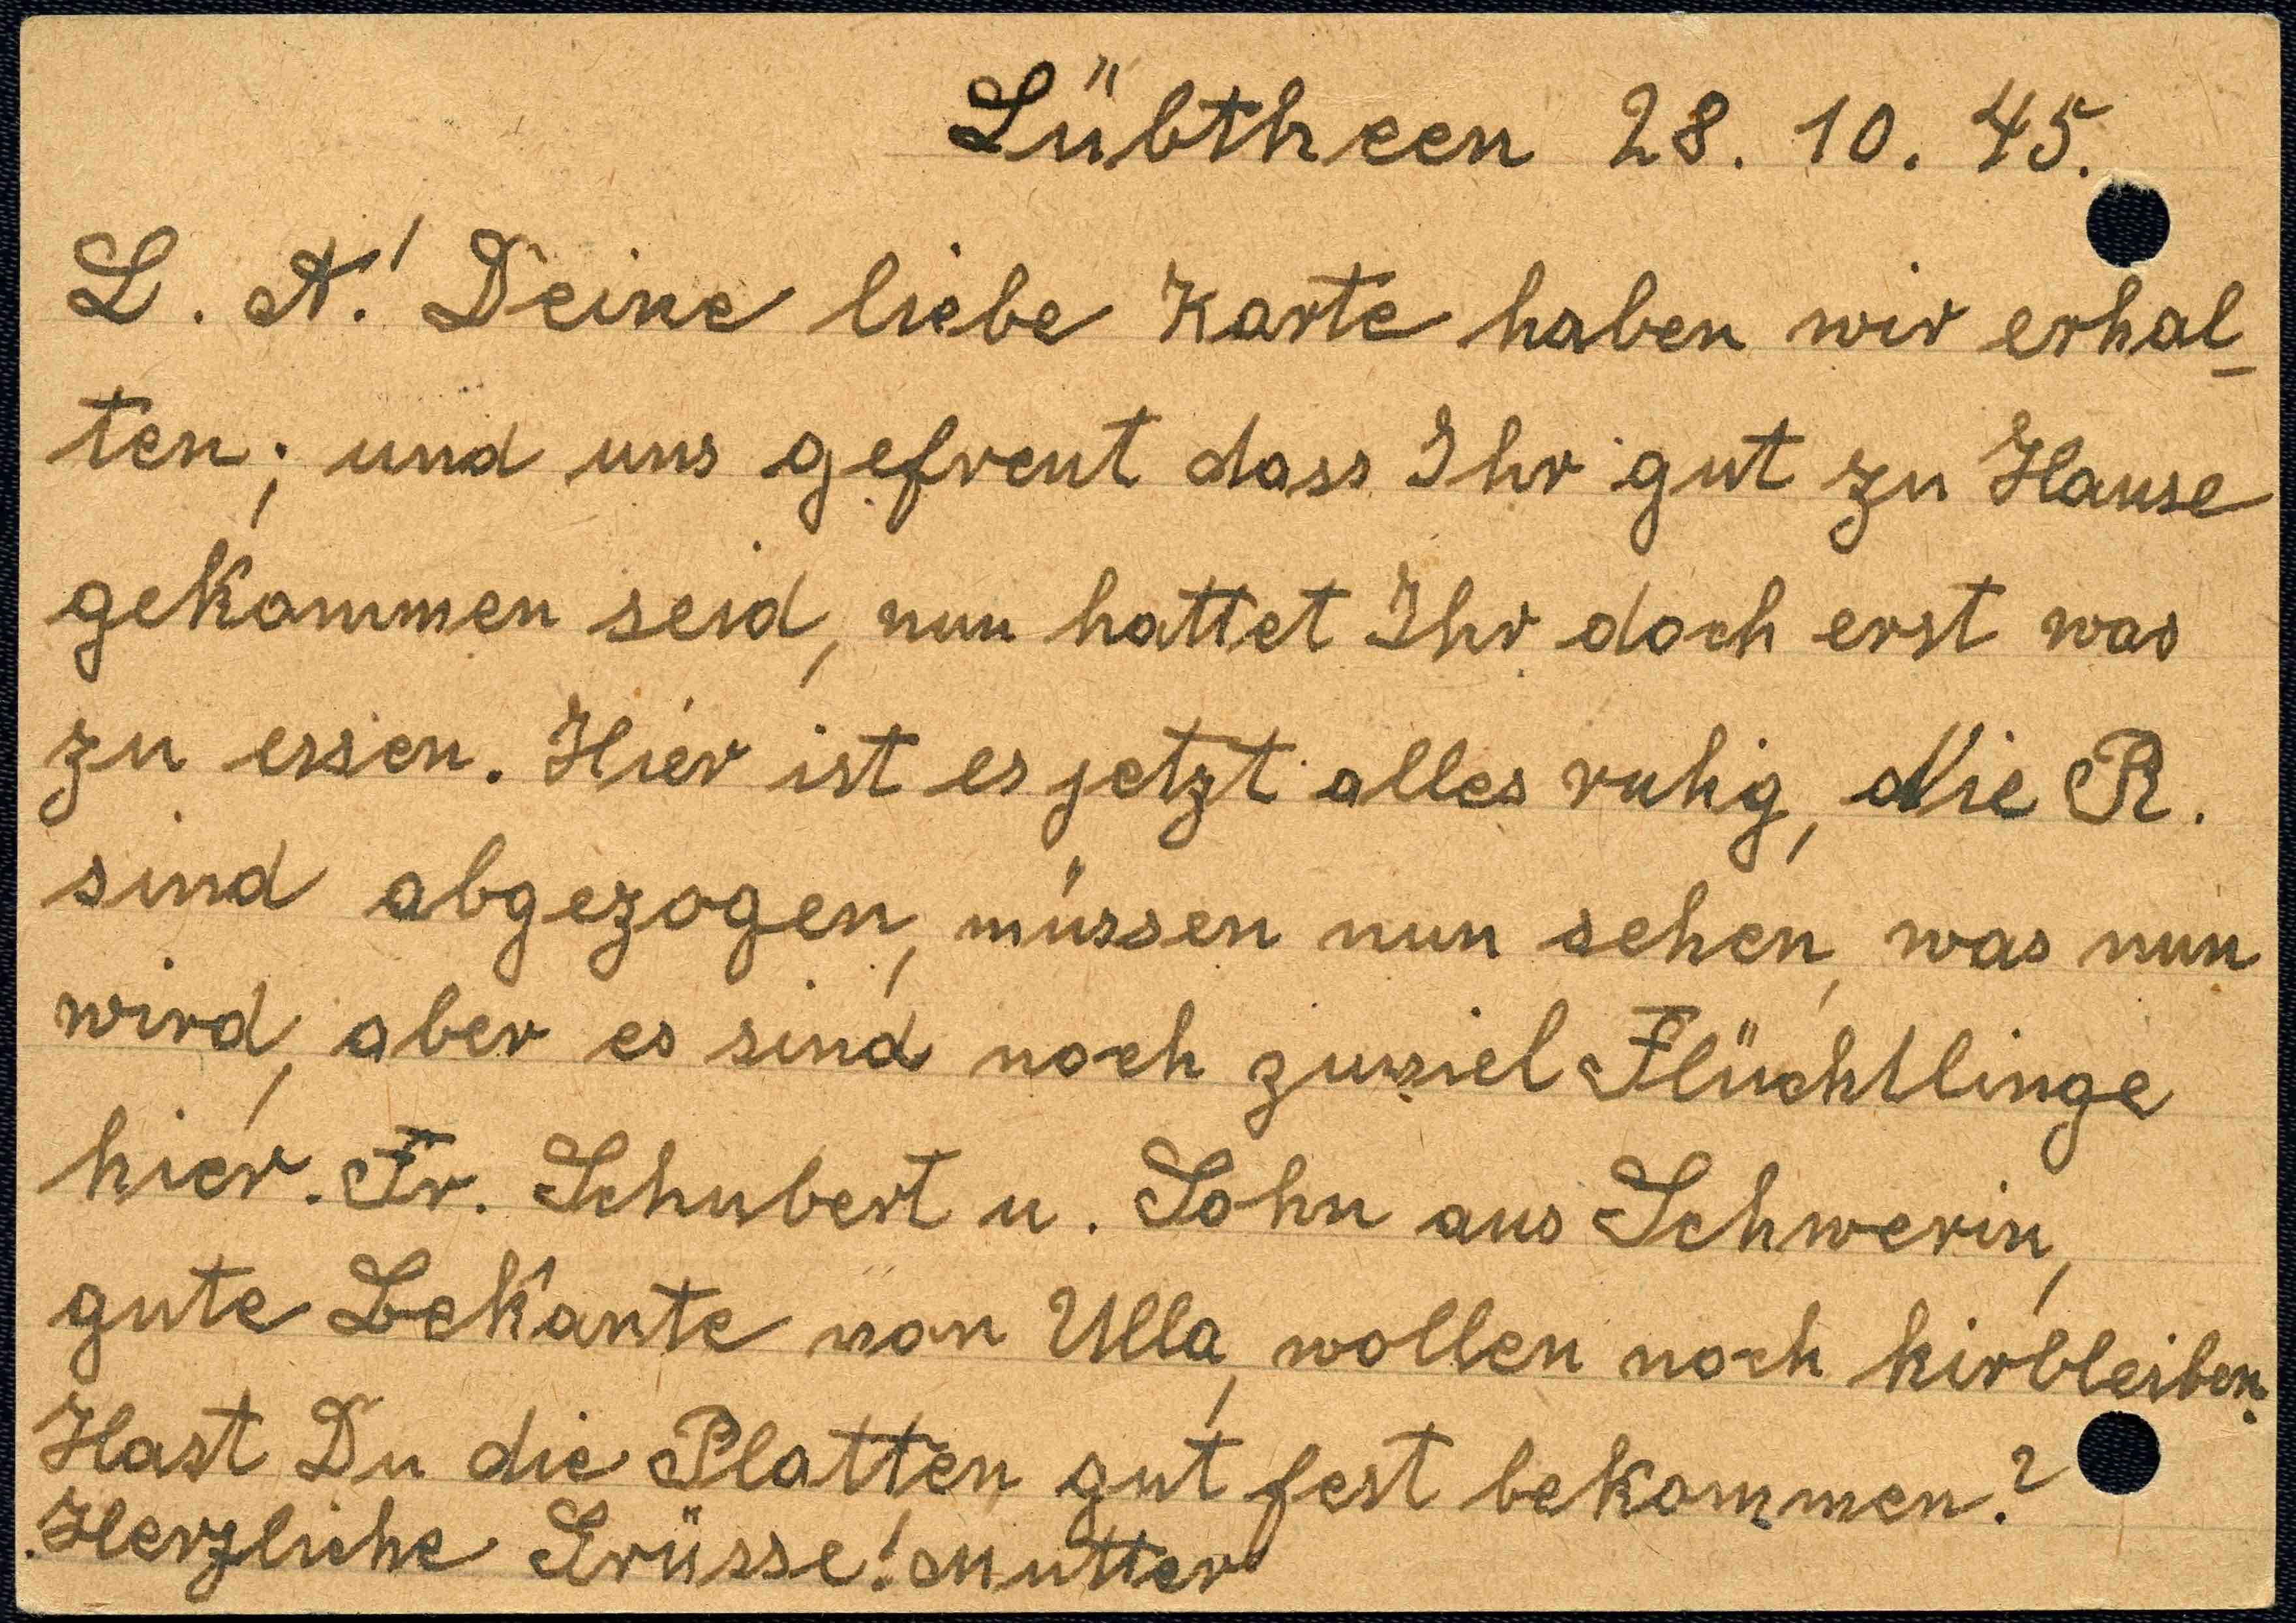 Lübtheen 28. 10. 45.
L. A.! Deine liebe Karte haben wir erhal-
ten; und uns gefreut dass Ihr gut zu Hause
gekommen seid, nun hattet Ihr doch erst was
zu essen. Hier ist es jetzt alles ruhig, die R.
sind abgezogen, müssen nun sehen, was nun
wird, aber es sind noch zuviel Flüchtlinge
hier. Fr. Schubert u. Sohn aus Schwerin,
gute Bekante von Ulla, wollen noch hirbleiben.
Hast Du die Platten gut fest bekommen?
Herzliche Grüsse! Mutter